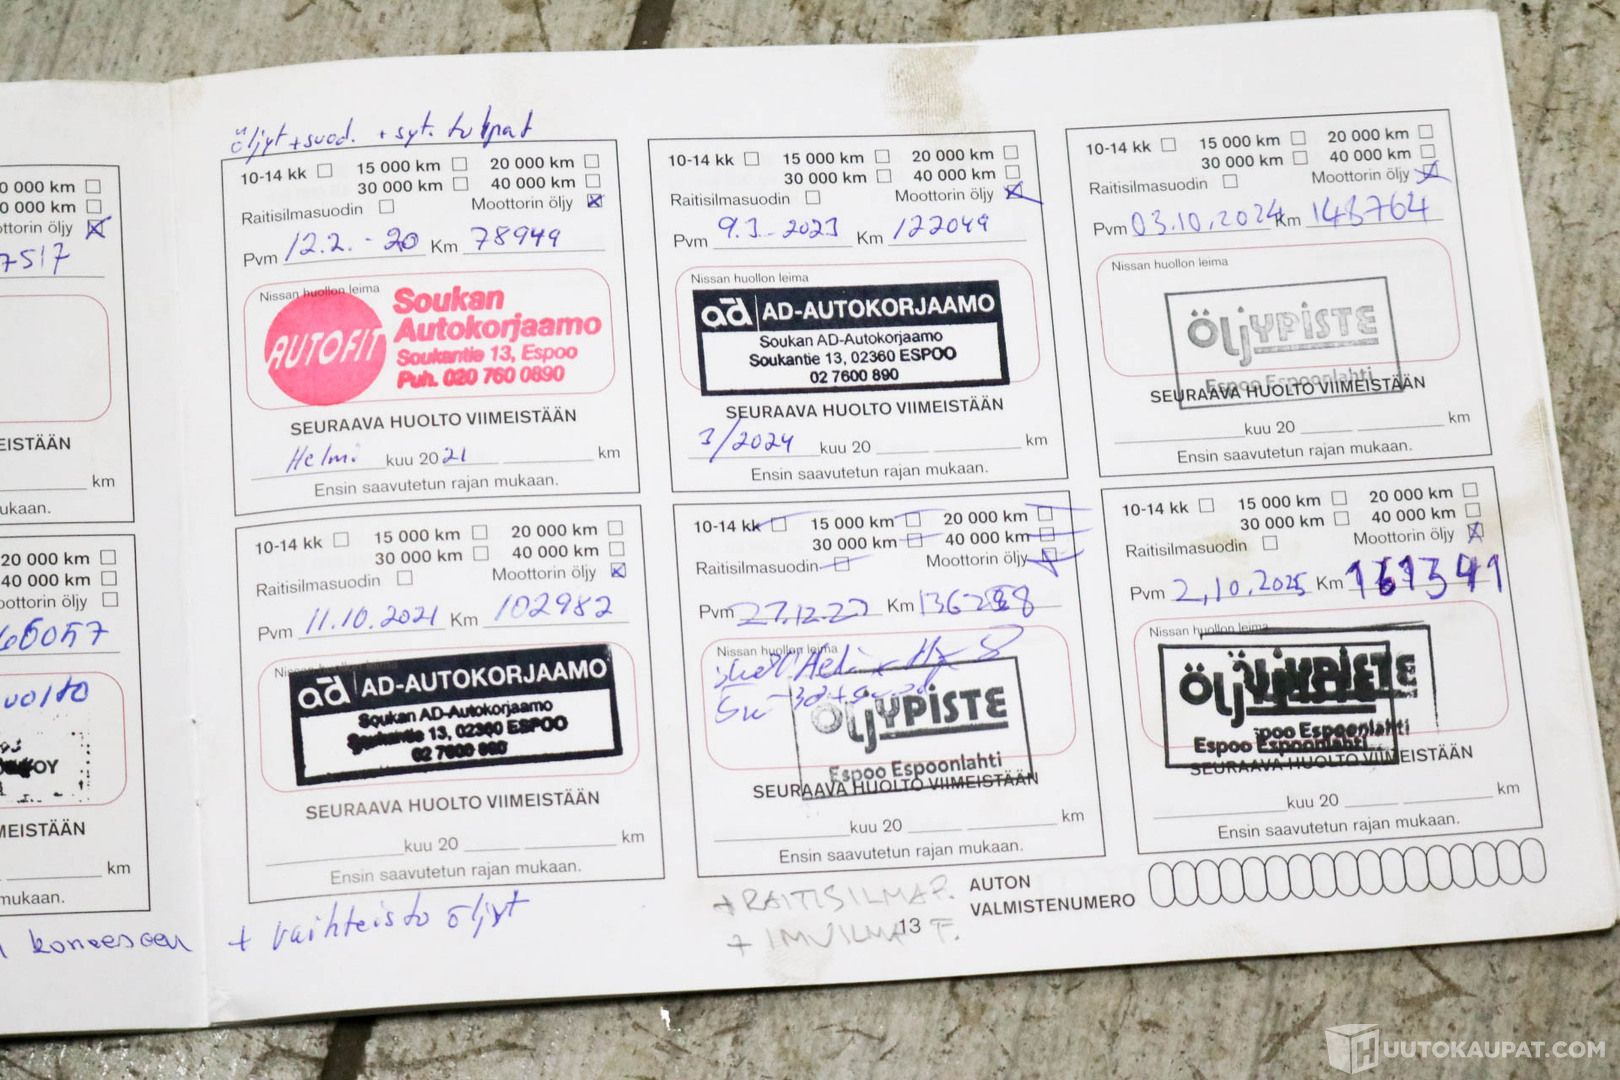 0 000 km
0 000 km
ttorin öljy
7517
EISTÄÄN
km
ukaan.
20 000 km
40 000 km
oottorin öljy
66057
uolto
OY
MEISTÄÄN
km
mukaan.
koneeseen
öljyt + suod. + syt. tulpat
10-14 kk 15 000 km 20 000 km
30 000 km 40 000 km
Raitisilmasuodin Moottorin öljy
Pvm 12.2.-20 Km 78949
Nissan huollon leima
AUTOFIT
Soukan
Autokorjaamo
Soukantie 13, Espoo
Puh. 020 760 0890
SEURAAVA HUOLTO VIIMEISTÄÄN
Helmi kuu 2021 km
Ensin saavutetun rajan mukaan.
10-14 kk 15 000 km 20 000 km
30 000 km 40 000 km
Raitisilmasuodin Moottorin öljy
Pvm 11.10.2021 Km 102982
ad AD-AUTOKORJAAMO
Soukan AD-Autokorjaamo
Soukantie 13, 02360 ESPOO
02 7600 890
SEURAAVA HUOLTO VIIMEISTÄÄN
kuu 20 km
Ensin saavutetun rajan mukaan.
+ vaihteisto öljyt
10-14 kk 15 000 km 20 000 km
30 000 km 40 000 km
Raitisilmasuodin Moottorin öljy
Pvm 9.3.-2023 Km 122049
Nissan huollon leima
ad AD-AUTOKORJAAMO
Soukan AD-Autokorjaamo
Soukantie 13, 02360 ESPOO
02 7600 890
SEURAAVA HUOLTO VIIMEISTÄÄN
3/2024 kuu 20 km
Ensin saavutetun rajan mukaan.
10-14 kk 15 000 km 20 000 km
30 000 km 40 000 km
Raitisilmasuodin Moottorin öljy
Pvm 27.12.23 Km
Nissan huollon leima
ÖLJYPISTE
Espoo Espoonlahti
SEURAAVA HUOLTO VIIMEISTÄÄN
kuu 20 km
Ensin saavutetun rajan mukaan.
+ RAITISILMA F.
+ IMUILMA F.
13
10-14 kk 15 000 km 20 000 km
30 000 km 40 000 km
Raitisilmasuodin Moottorin öljy
Pvm 03.10.2024 Km 148764
Nissan huollon leima
ÖLJYPISTE
Espoo Espoonlahti
SEURAAVA HUOLTO VIIMEISTÄÄN
kuu 20 km
Ensin saavutetun rajan mukaan.
10-14 kk 15 000 km 20 000 km
30 000 km 40 000 km
Raitisilmasuodin Moottorin öljy
Pvm 2,10.2025 Km 161341
Nissan huollon leima
ÖLJYPISTE
Espoo Espoonlahti
SEURAAVA HUOLTO VIIMEISTÄÄN
kuu 20 km
Ensin saavutetun rajan mukaan.
AUTON
VALMISTENUMERO
HUUTOKAUPAT.COM